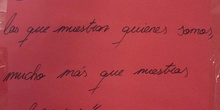 las que muestran quienes somos
mucho más que nuestras